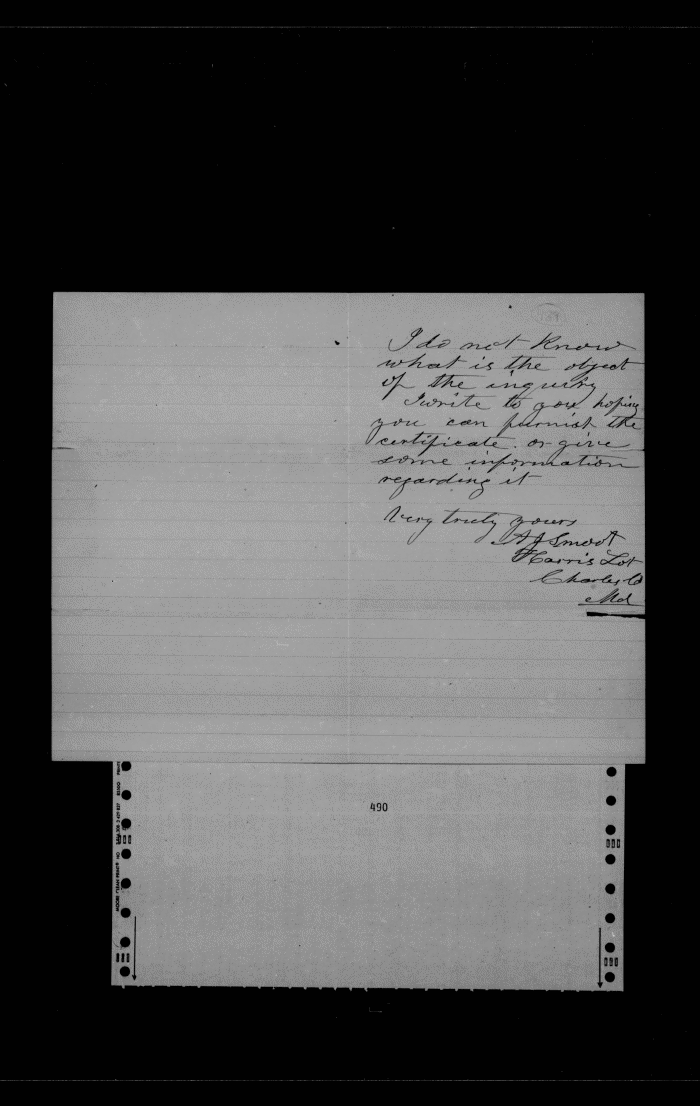 I do not know
what is the object
of the inquiry
I write to you hoping
you can furnish the
certificate. or give
some information
regarding it
Very truly yours
A J Smoot
Harris Lot
Charles Co
Md
490